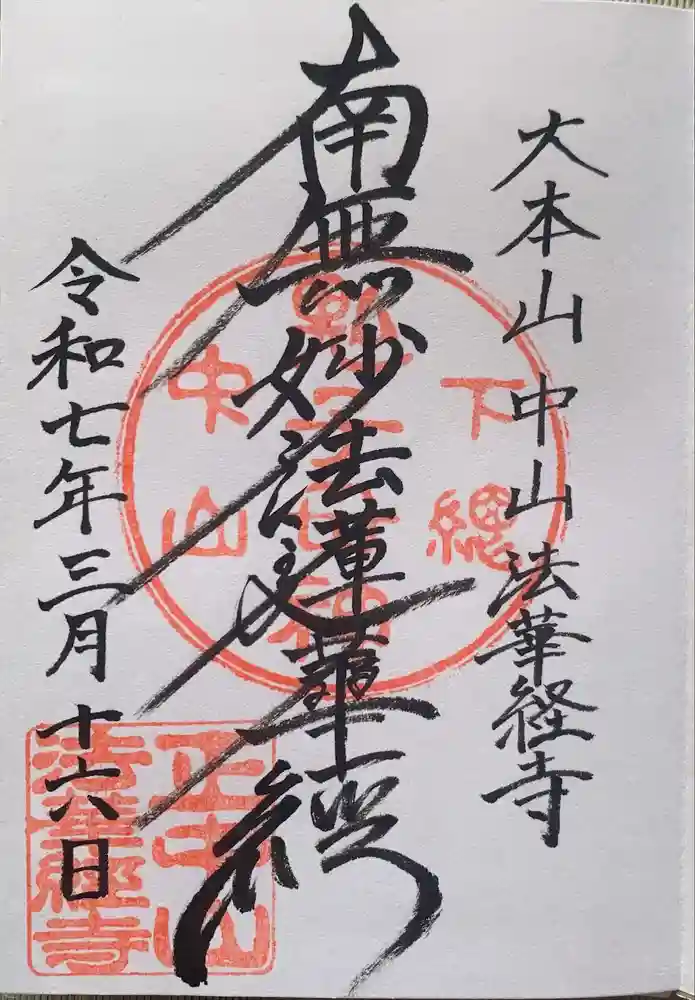 大本山中山法華経寺
南無妙法蓮華経
令和七年三月十六日
下総
中山
正中山
法華經寺